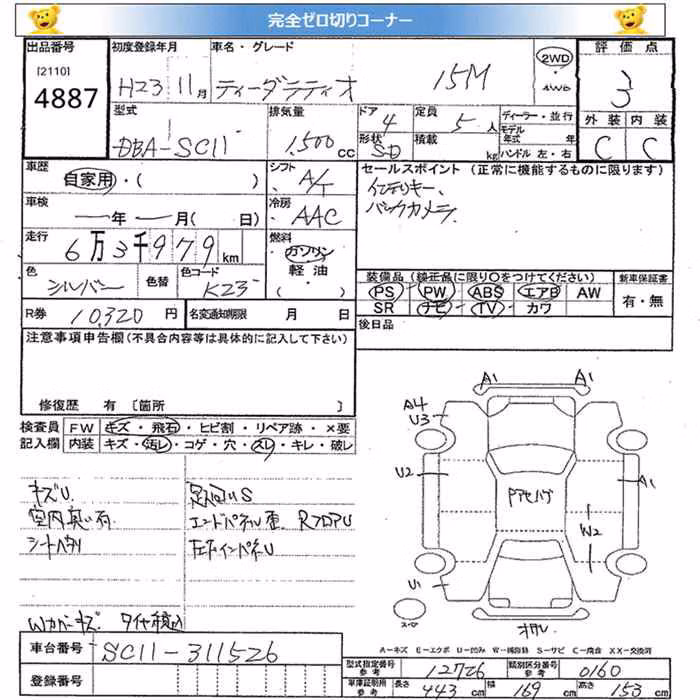 完全ゼロ切りコーナー
出品番号 初度登録年月 車名・グレード 評価点
[2110] 4887 H23 11月 ティーダラティオ 15M 2WD 4WD 3
型式 排気量 ドア 4 定員 5人 ディーラー・並行 外装 内装
DBA-SC11 1,500cc 形状 SD 積載 kg モデル年式 年 ハンドル 左・右 C C
車歴 自家用・( ) シフト A/T セールスポイント (正常に機能するものに限ります)
インテリキー、
車検 年 月( 日) 冷房 AAC バックカメラ
走行 6万3千979km 燃料 ガソリン 軽油 ( )
色 シルバー 色替 色コード K23 装備品 (純正品に限り○をつけてください) 新車保証書
PS PW ABS エアB AW 有・無
R券 10,320円 名変通知期限 月 日 SR ナビ TV カワ
注意事項申告欄(不具合内容等は具体的に記入して下さい) 後日品
修復歴 有 [箇所 ]
検査員 FW キズ・飛石・ヒビ割・リペア跡・×要
記入欄 内装 キズ・汚レ・コゲ・穴・スレ・キレ・破レ
A1 A1
A4
U3
U2 A1
W2
U1
キズU 足回りS
エンドパネル
Wカバーキズ
スペア
A－キズ E－エクボ U－凹み W－補修跡 S－サビ C－腐食 XX－交換済
車台番号 SC11-311526
登録番号
型式指定番号 参考 12726 類別区分番号 参考 0160
車庫証明用 参考 長さ 443cm 幅 169cm 高さ 153cm